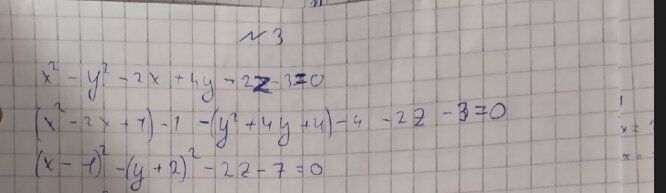 №3
x² - y² - 2x + 4y - 2z - 3 = 0
(x² - 2x + 1) - 1 - (y² + 4y + 4) - 4 - 2z - 3 = 0
(x - 1)² - (y + 2)² - 2z - 7 = 0